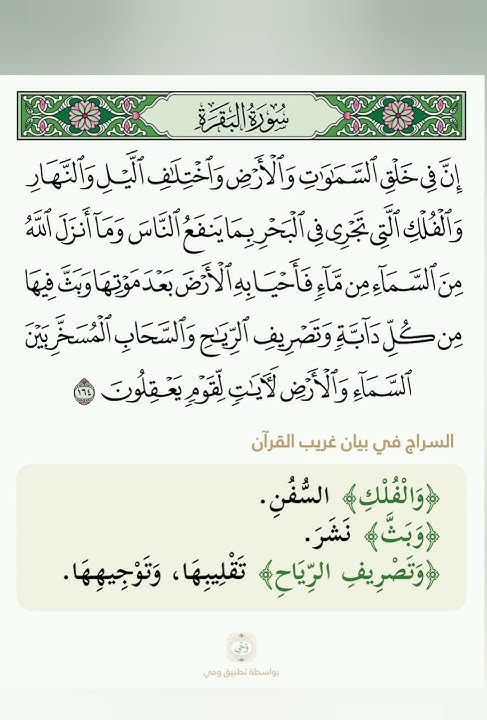 سُورَةُ الْبَقَرَةِ
إِنَّ فِي خَلْقِ ٱلسَّمَٰوَٰتِ وَٱلْأَرْضِ وَٱخْتِلَٰفِ ٱلَّيْلِ وَٱلنَّهَارِ
وَٱلْفُلْكِ ٱلَّتِي تَجْرِي فِي ٱلْبَحْرِ بِمَا يَنفَعُ ٱلنَّاسَ وَمَآ أَنزَلَ ٱللَّهُ
مِنَ ٱلسَّمَآءِ مِن مَّآءٍ فَأَحْيَا بِهِ ٱلْأَرْضَ بَعْدَ مَوْتِهَا وَبَثَّ فِيهَا
مِن كُلِّ دَآبَّةٍ وَتَصْرِيفِ ٱلرِّيَٰحِ وَٱلسَّحَابِ ٱلْمُسَخَّرِ بَيْنَ
ٱلسَّمَآءِ وَٱلْأَرْضِ لَءَايَٰتٍ لِّقَوْمٍ يَعْقِلُونَ ١٦٤
السراج في بيان غريب القرآن
﴿وَالْفُلْكِ﴾ السُّفُنِ.
﴿وَبَثَّ﴾ نَشَرَ.
﴿وَتَصْرِيفِ الرِّيَاحِ﴾ تَقْلِيبِهَا، وَتَوْجِيهِهَا.
وَحْي
بواسطة تطبيق وحي